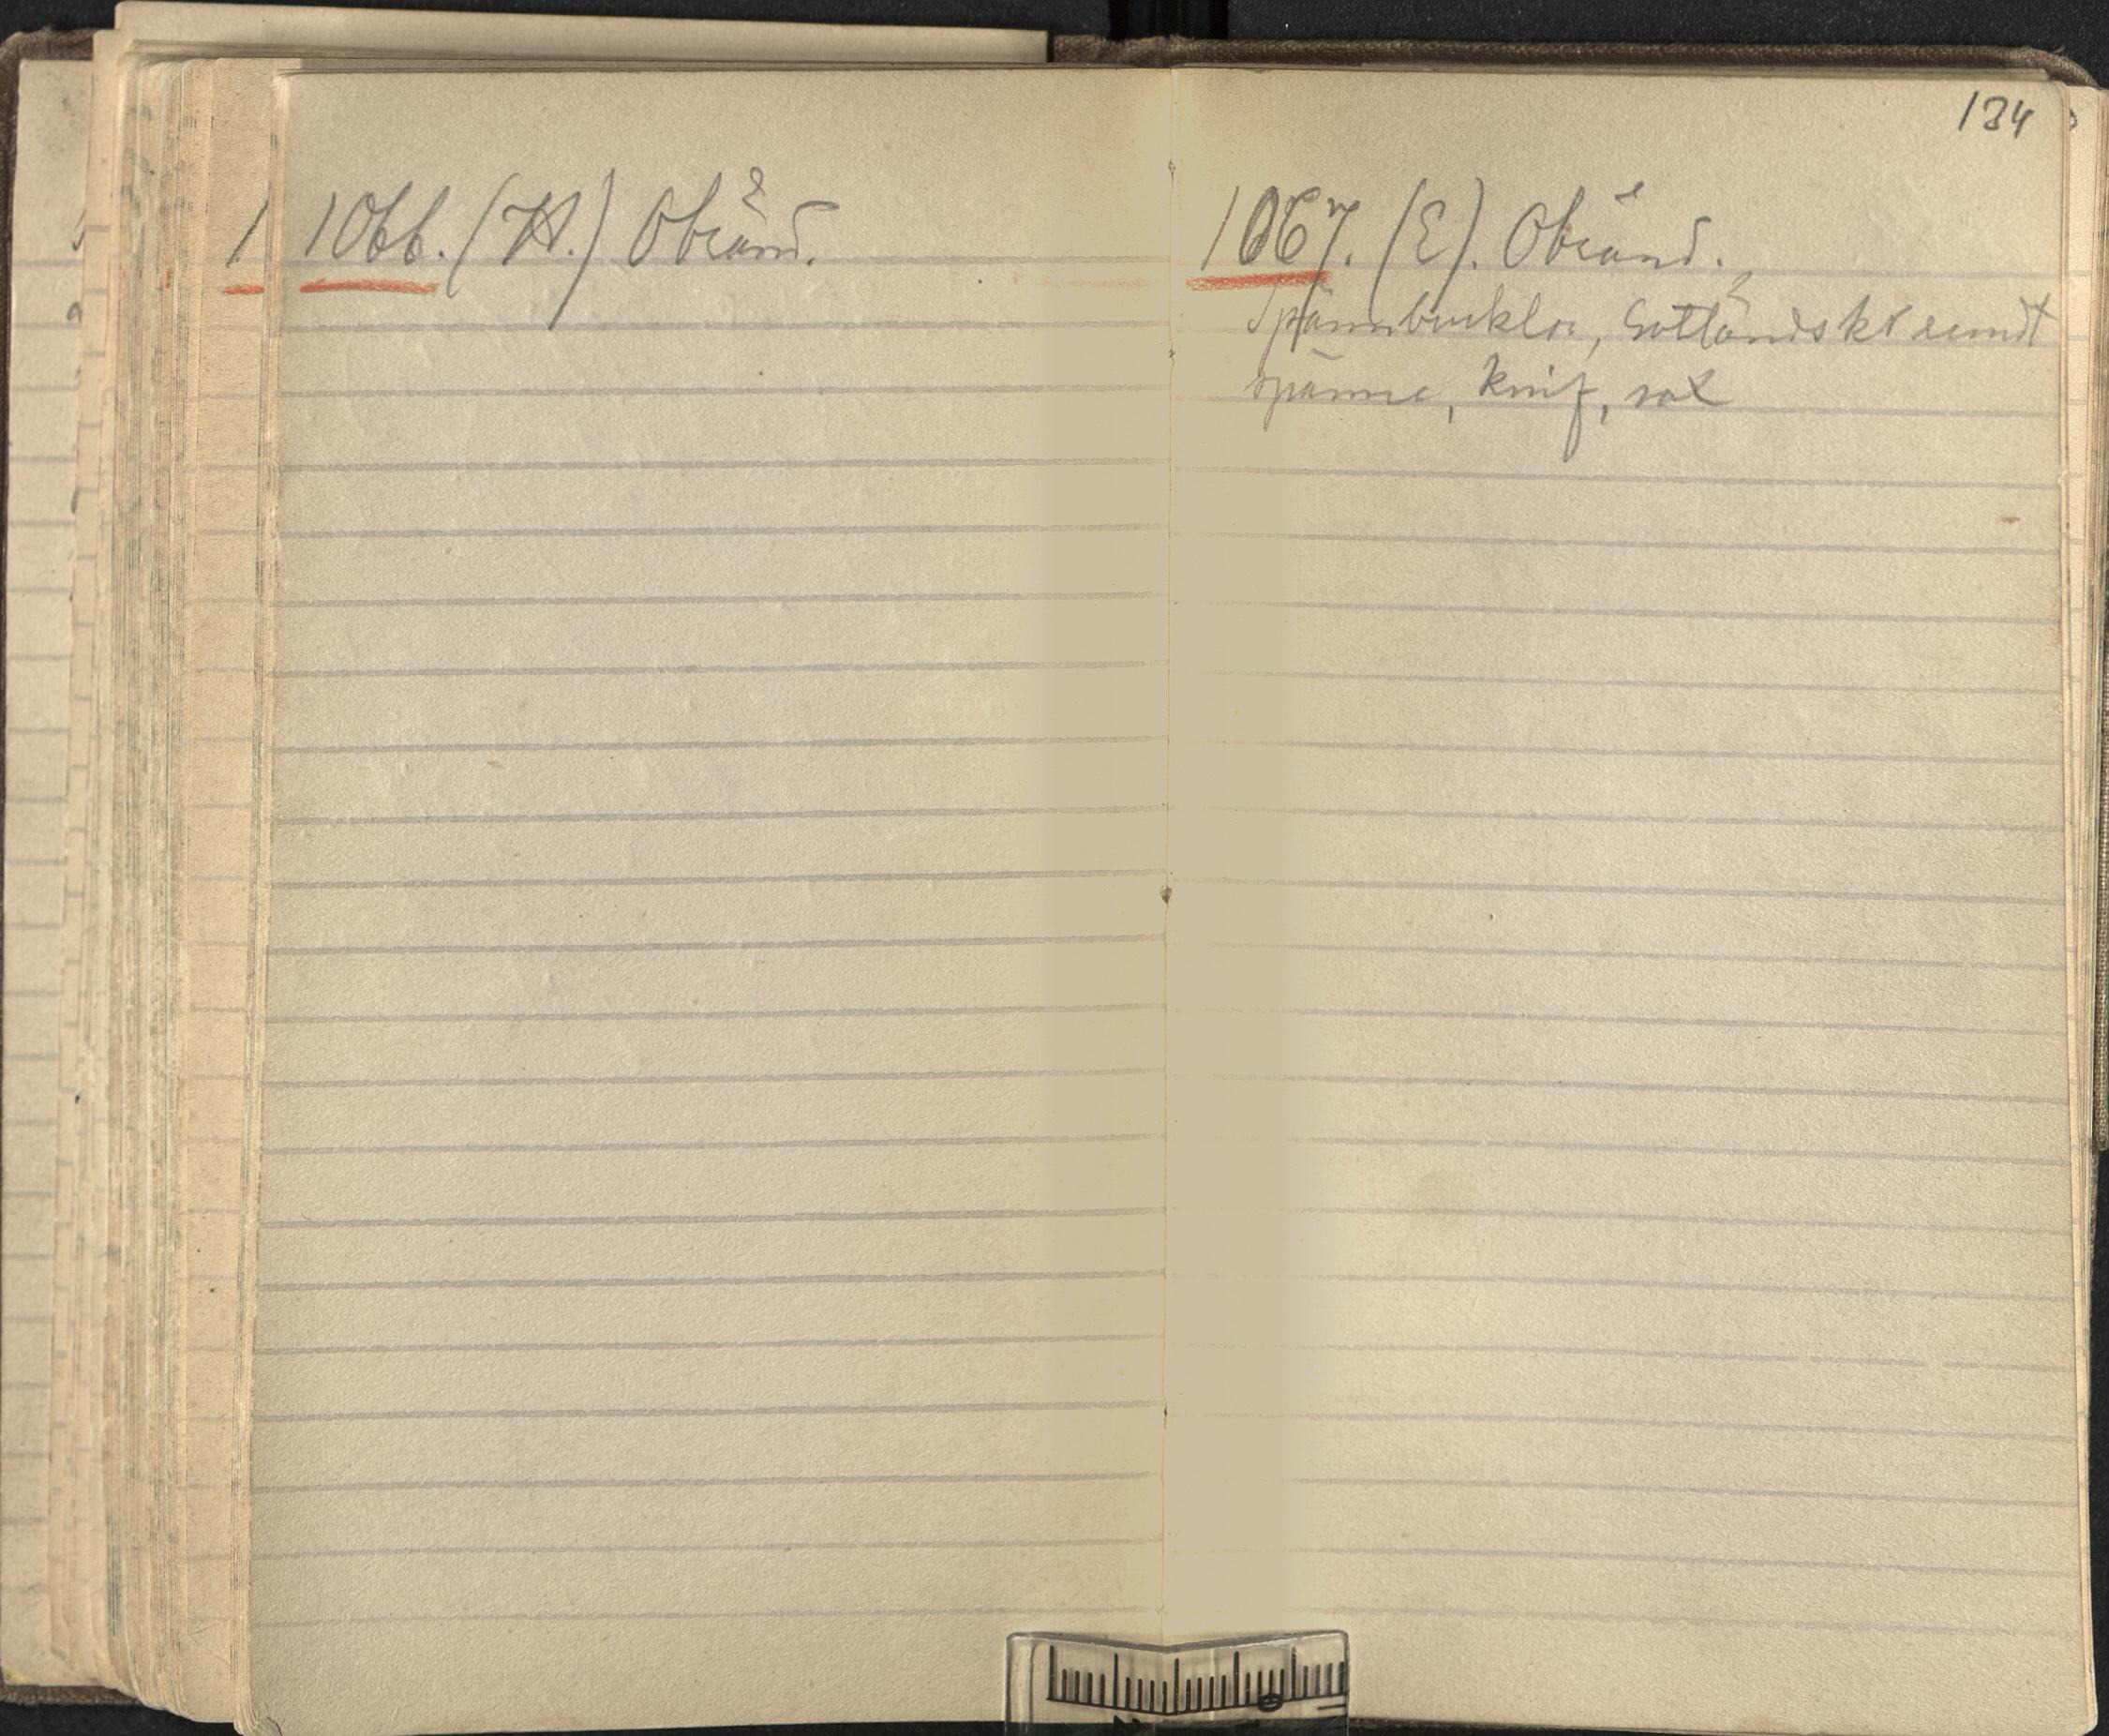 1066. (H.) Obränd.
134
1067. (E). Obränd.
Spännbucklor, Gotländskt rundt
spänne, knif,